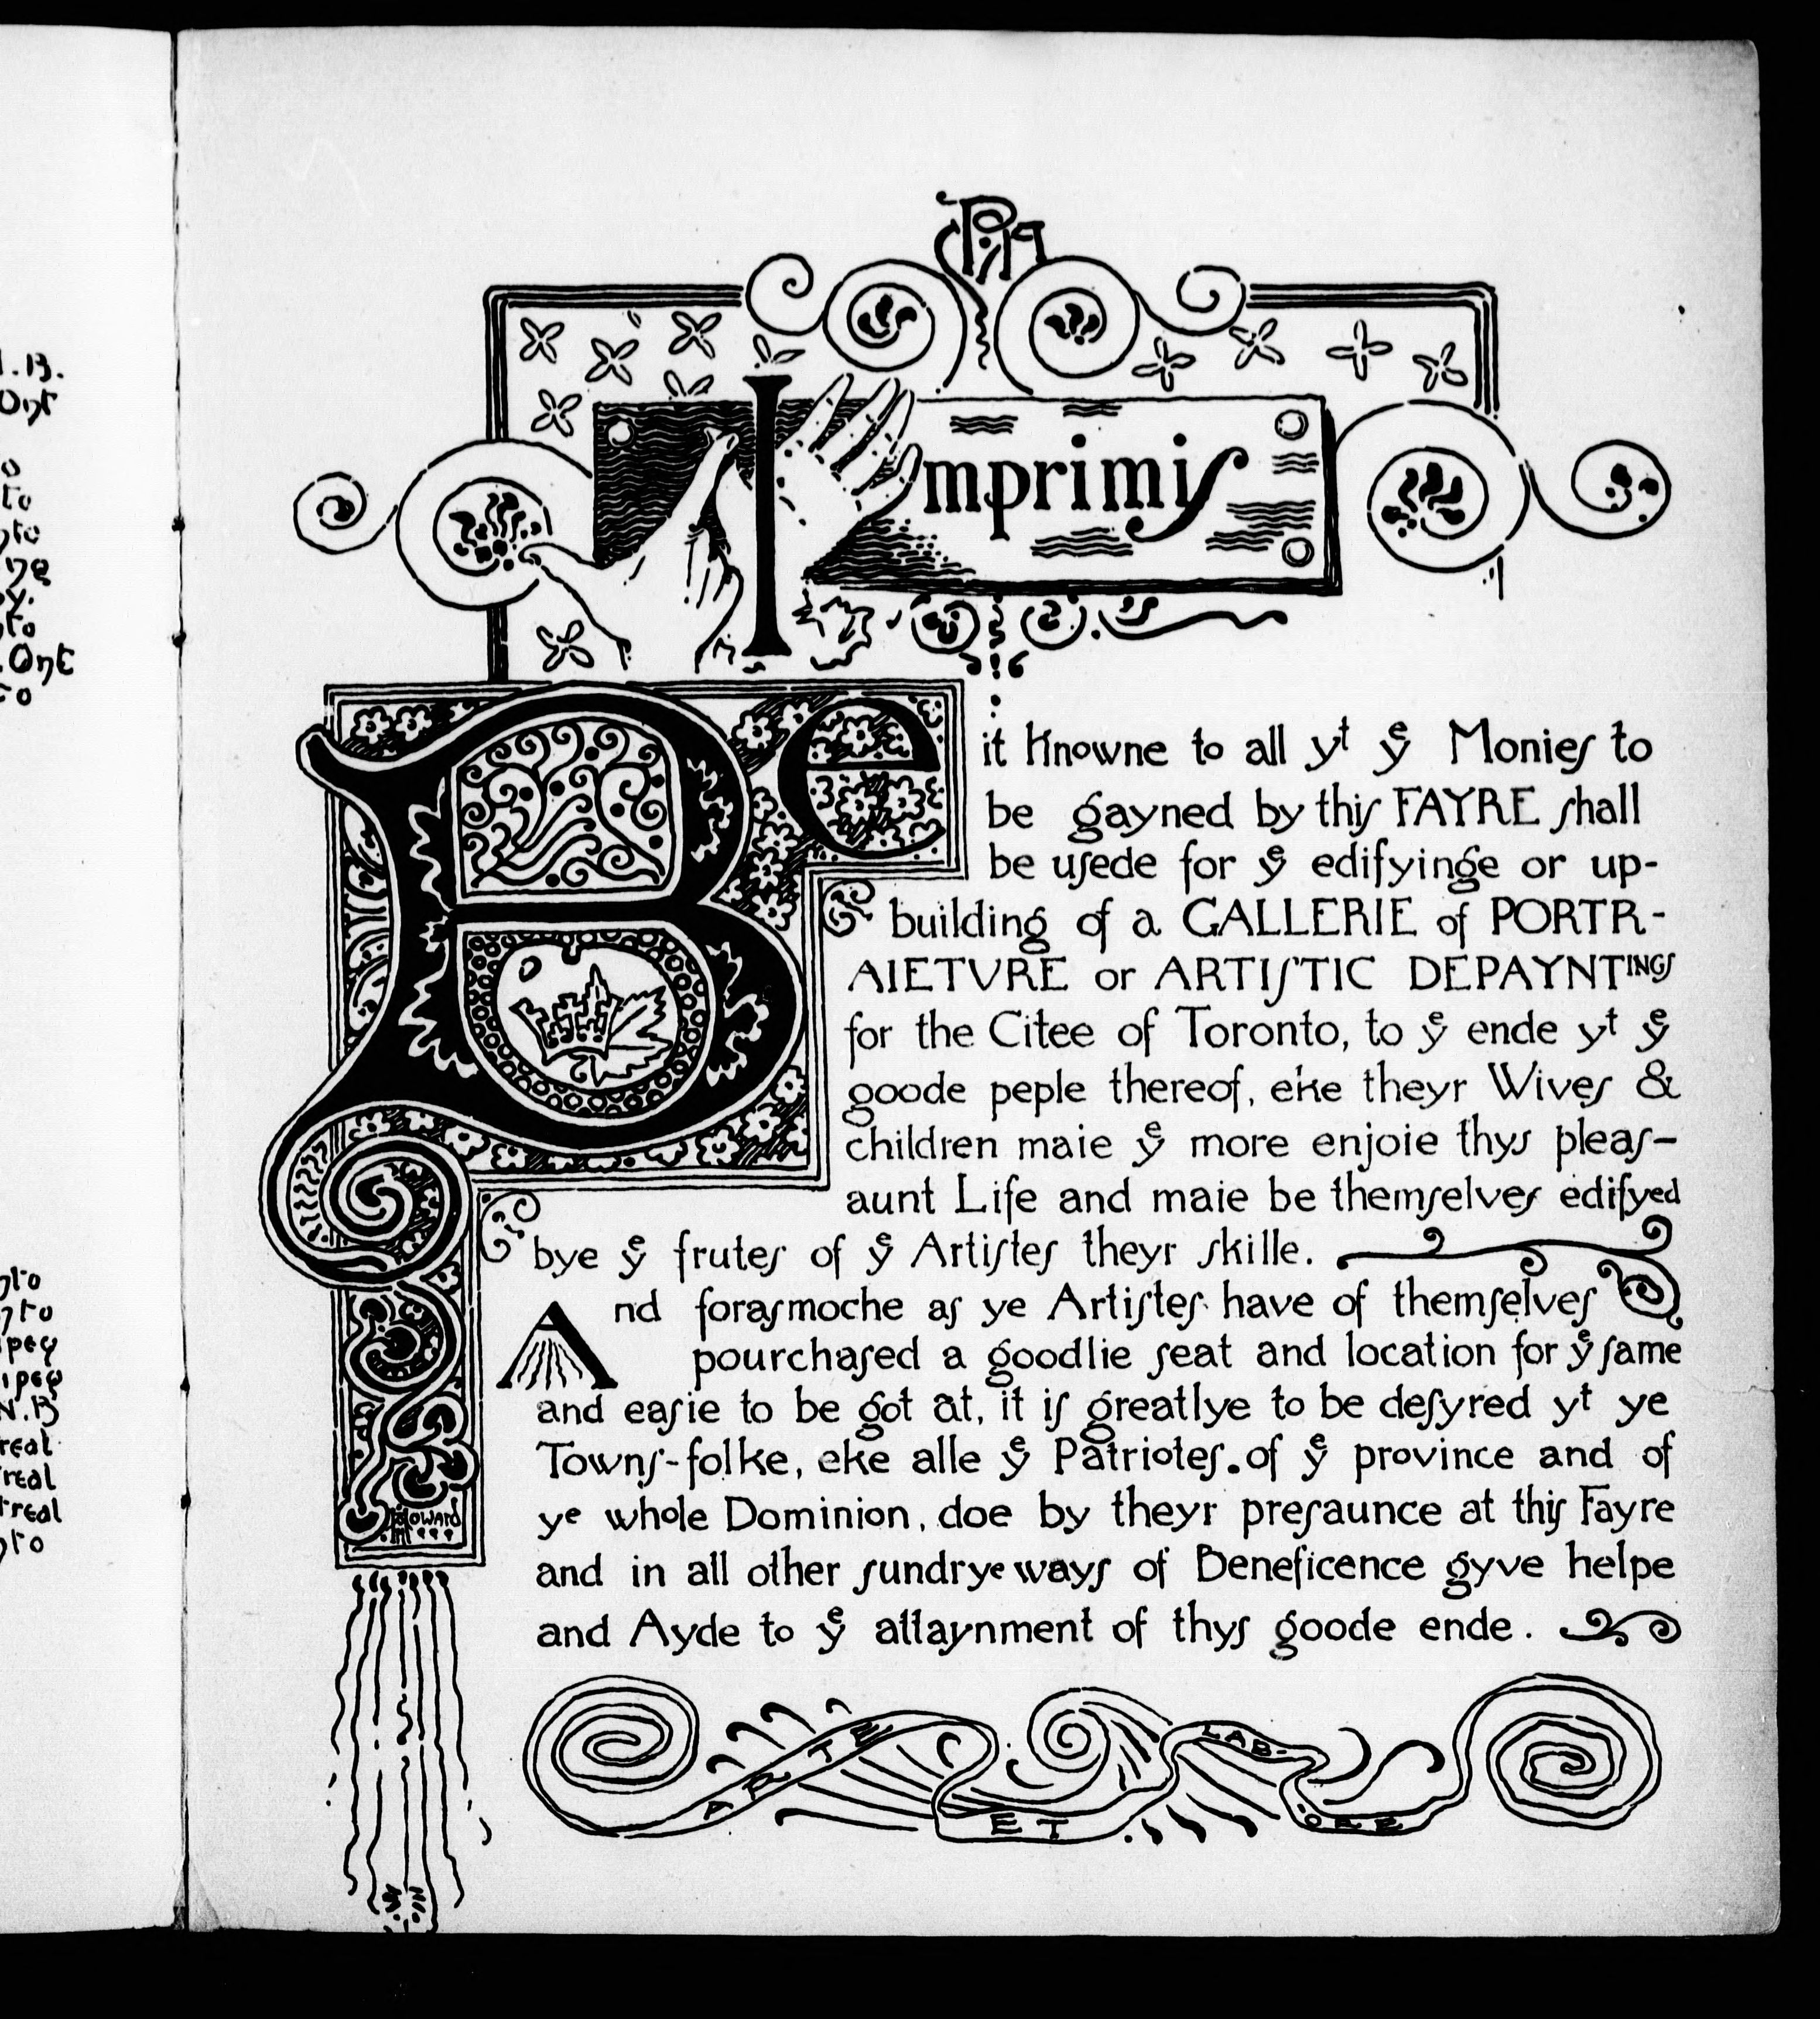 N.B.
Ont
o
to
nto
ne
y.
to
.Ont
to
nto
nto
ipeg
ipeg
N.B
real
real
treal
nto
Imprimis
Be it Knowne to all yt ye Monies to
be gayned by this FAYRE shall
be usede for ye edifyinge or up-
building of a GALLERIE of PORTR-
AIETVRE or ARTISTIC DEPAYNTINGS
for the Citee of Toronto, to ye ende yt ye
goode peple thereof, eke theyr Wives &
children maie ye more enjoie thys pleas-
aunt Life and maie be themselves edifyed
bye ye frutes of ye Artistes theyr skille.
And forasmoche as ye Artistes have of themselves
pourchased a goodlie seat and location for ye same
and easie to be got at, it is greatlye to be desyred yt ye
Towns-folke, eke alle ye Patriotes of ye province and of
ye whole Dominion, doe by theyr presaunce at this Fayre
and in all other sundrye ways of Beneficence gyve helpe
and Ayde to ye attaynment of thys goode ende.
Howard
ARTE ET LAB-ORE